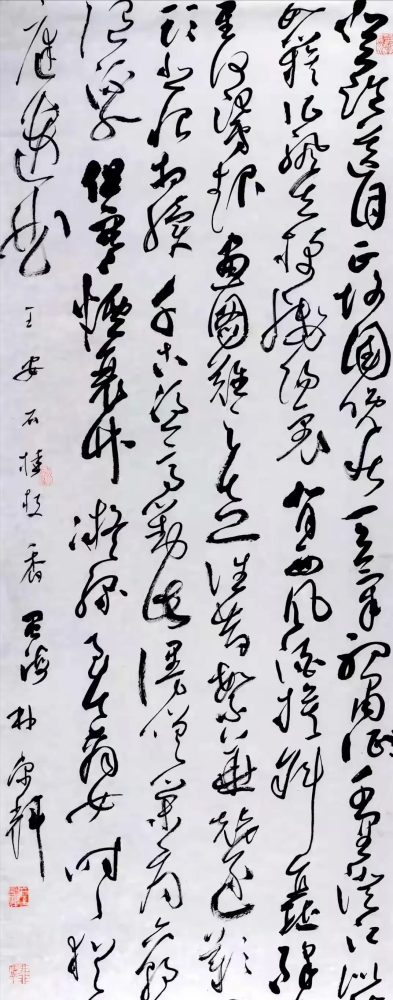 登臨送目正故國晚秋天氣初肅千里澄江似
如簇帆去棹殘陽裏背西風酒旗斜矗
星河鷺起畫圖難足念往昔繁華競逐歎
頭悲恨相續千古憑高對此謾嗟榮辱六朝
流水但寒煙衰草凝綠至今商女時時猶
庭遺曲
王安石桂枝香